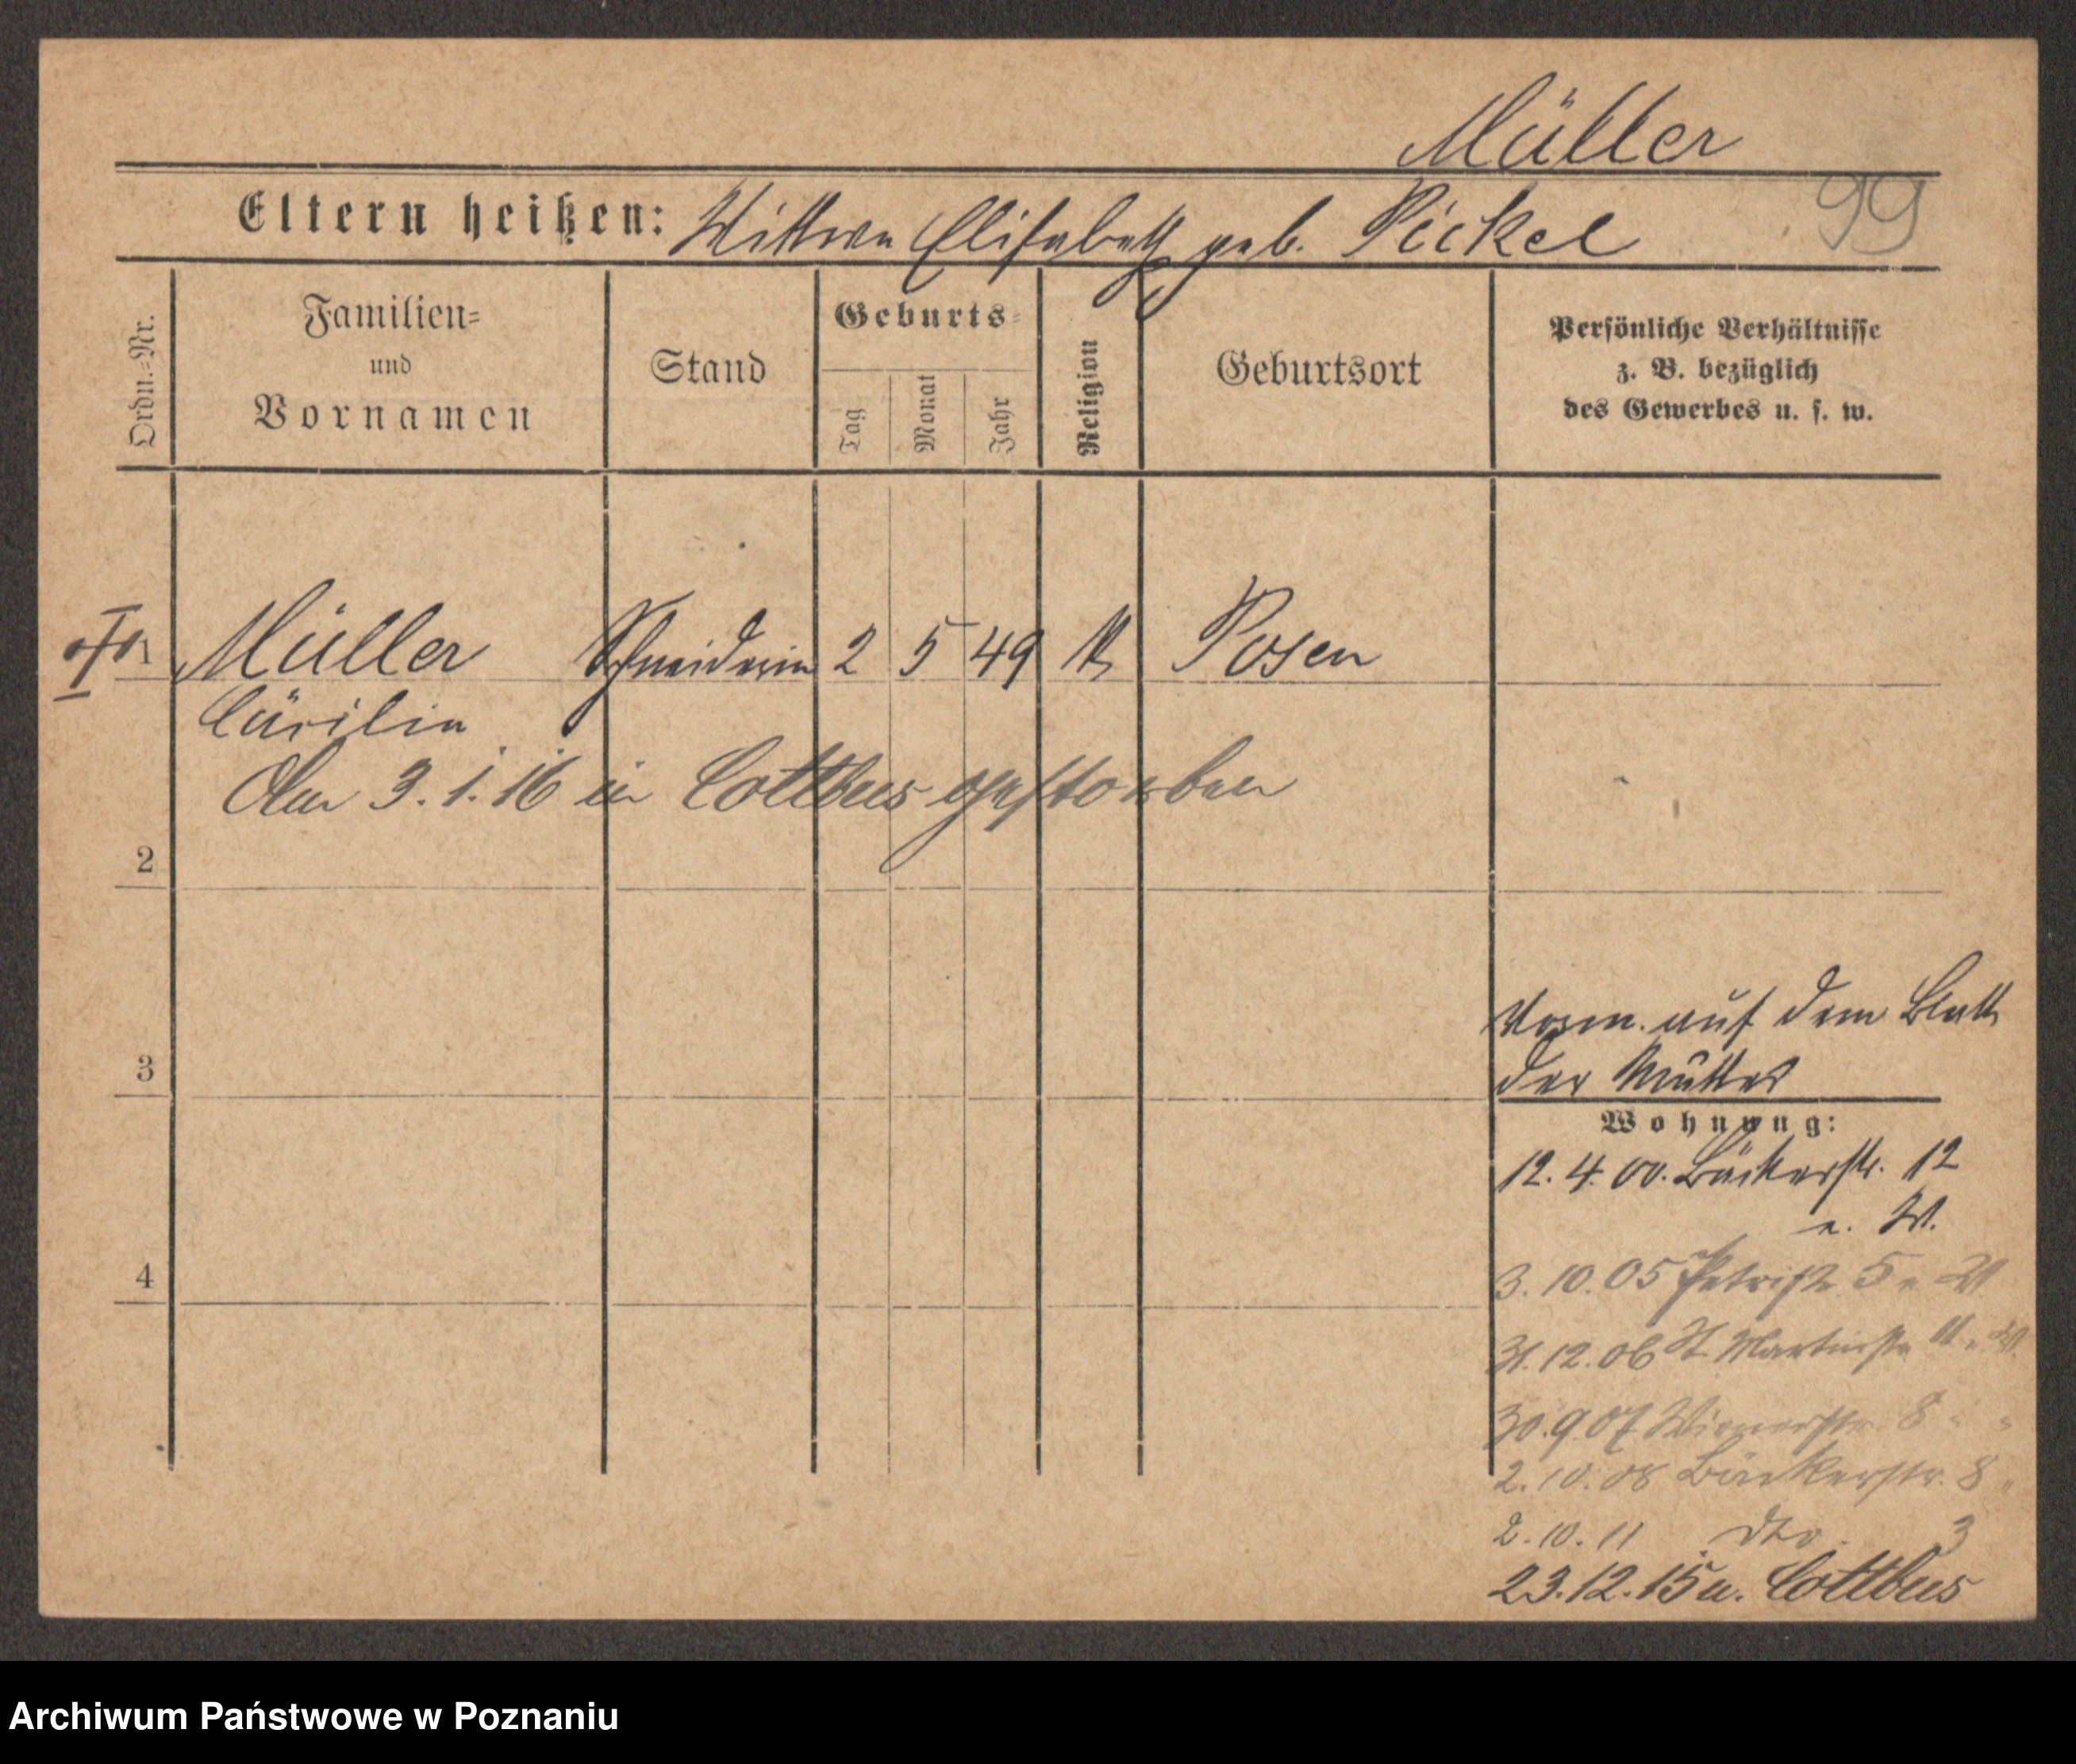 Müller
99
Eltern heißen: Wittwe Elisabeth geb. Pickel
Ordn.-Nr.
Familien-
und
Vornamen
Stand
Geburts-
Tag
Monat
Jahr
Religion
Geburtsort
Persönliche Verhältnisse
z. B. bezüglich
des Gewerbes u. s. w.
Müller Schneiderin 2 5 49 K Posen
Cäcilie
Am 3.1.16 in Cottbus gestorben
2
Verm. auf dem Blatt
3
der Mutter
Wohnung:
12.4.00. Bäckerstr. 12
a. W.
4
3.10.05 Petristr 5 a W
31.12.06 St Martinstr 11 a W.
30.9.07 Wienerstr. 8 " "
2.10.08 Bäckerstr. 8 "
2.10.11 dto. 3
23.12.15 n. Cottbus
Archiwum Państwowe w Poznaniu